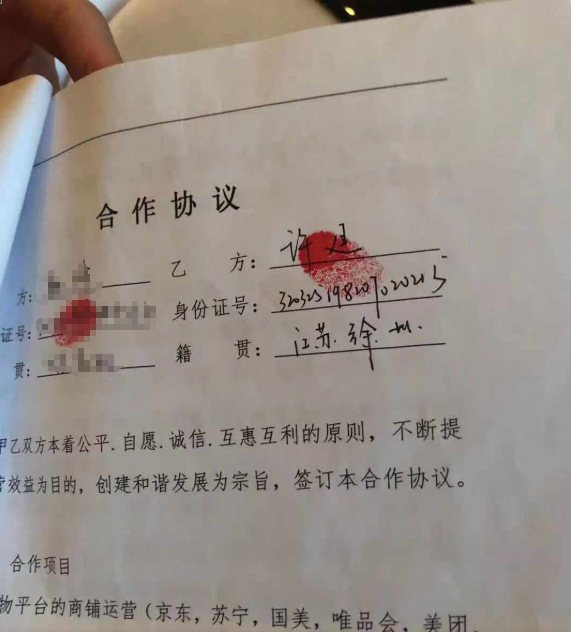 合作协议
方： 乙 方：许廷
证号： 身份证号：
贯： 籍 贯：江苏.徐州.
甲乙双方本着公平.自愿.诚信.互惠互利的原则，不断提
营效益为目的，创建和谐发展为宗旨，签订本合作协议。
合作项目
物平台的商铺运营（京东，苏宁，国美，唯品会，美团，